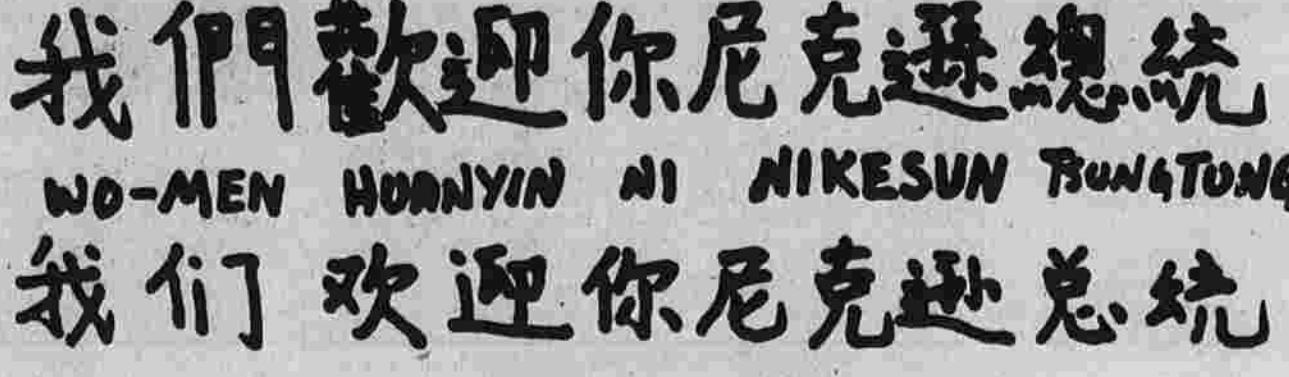 我們歡迎你尼克遜總統
WO-MEN HUANYIN NI NIKESUN TSUNGTUNG
我们欢迎你尼克逊总統